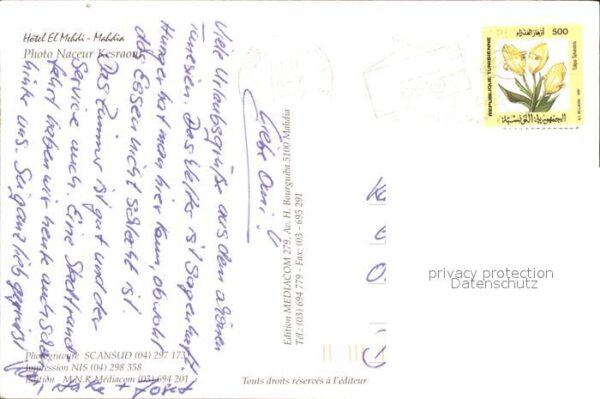 Hôtel El Mehdi - Mahdia
Photo Naceur Kesraoui
Liebe Omi!
Viele Urlaubsgrüße aus dem schönen
Tunesien. Das Wetter ist sagenhaft.
Hunger hat man hier kaum, obwohl
das Essen nicht schlecht ist.
Das Zimmer ist gut und der
Service auch. Eine Stadtrund
fahrt haben wir heute auch schon
hinter uns. Sei ganz lieb gegrüßt
+ Josef
Edition MEDIACOM 279, Av. H. Bourguiba 5100 Mahdia
Tél.: (03) 694 779 - Fax: (03 - 695 291
Photogravure SCANSUD (04) 297 173
Impression NIS (04) 298 358
Edition M.N.R Médiacom (03) 694 201
Touts droits réservés à l'éditeur
أزهار الغدائر
500
REPUBLIQUE TUNISIENNE
الجمهورية التونسية
privacy protection
Datenschutz